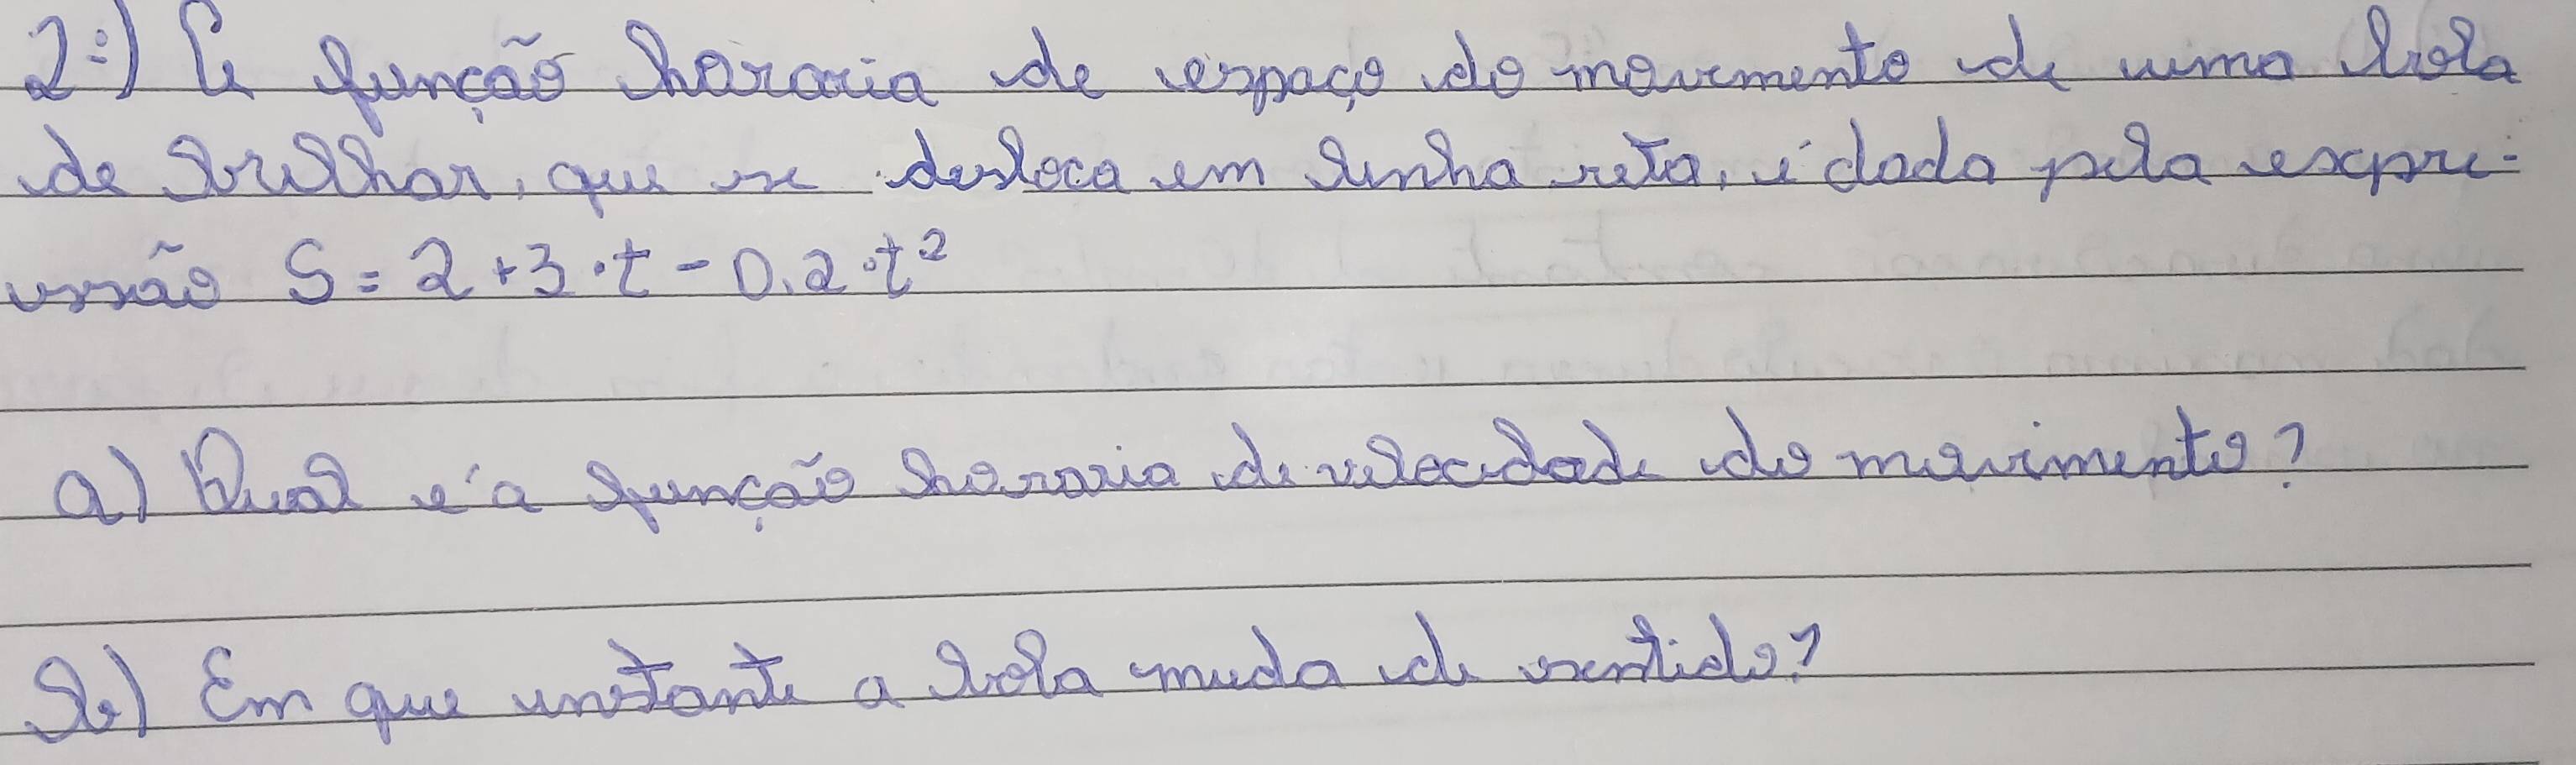 2:) A função horaria de espaço do movimento de uma bola
de brilhar, que se desloca em linha reta, é dada pela expre-
ssão S = 2 + 3 . t - 0,2 . t²
a) Qual é a função horaria de velocidade do movimento?
b) Em que instante a bola muda de sentido?